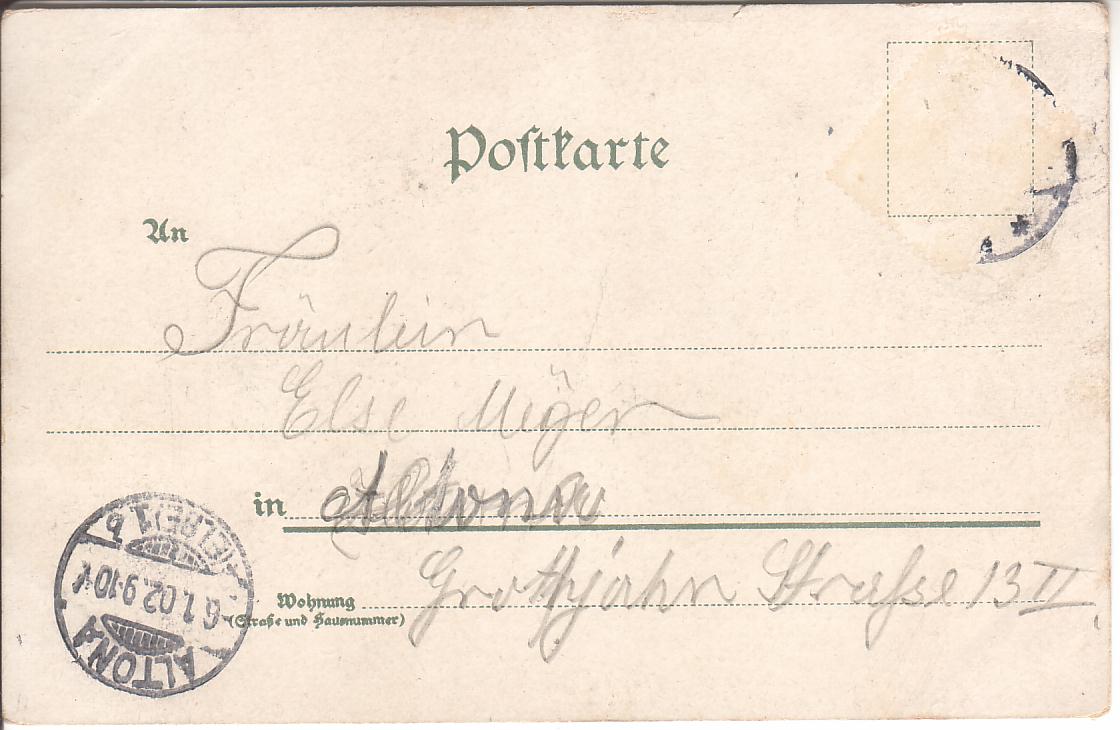 Postkarte
An
Fräulein
Else Meÿer
in Altona
Grothjahn Straße 13 II
Wohnung
(Straße und Hausnummer)
ALTONA
6.1.02.9-10V.
(ELBE) 1 b